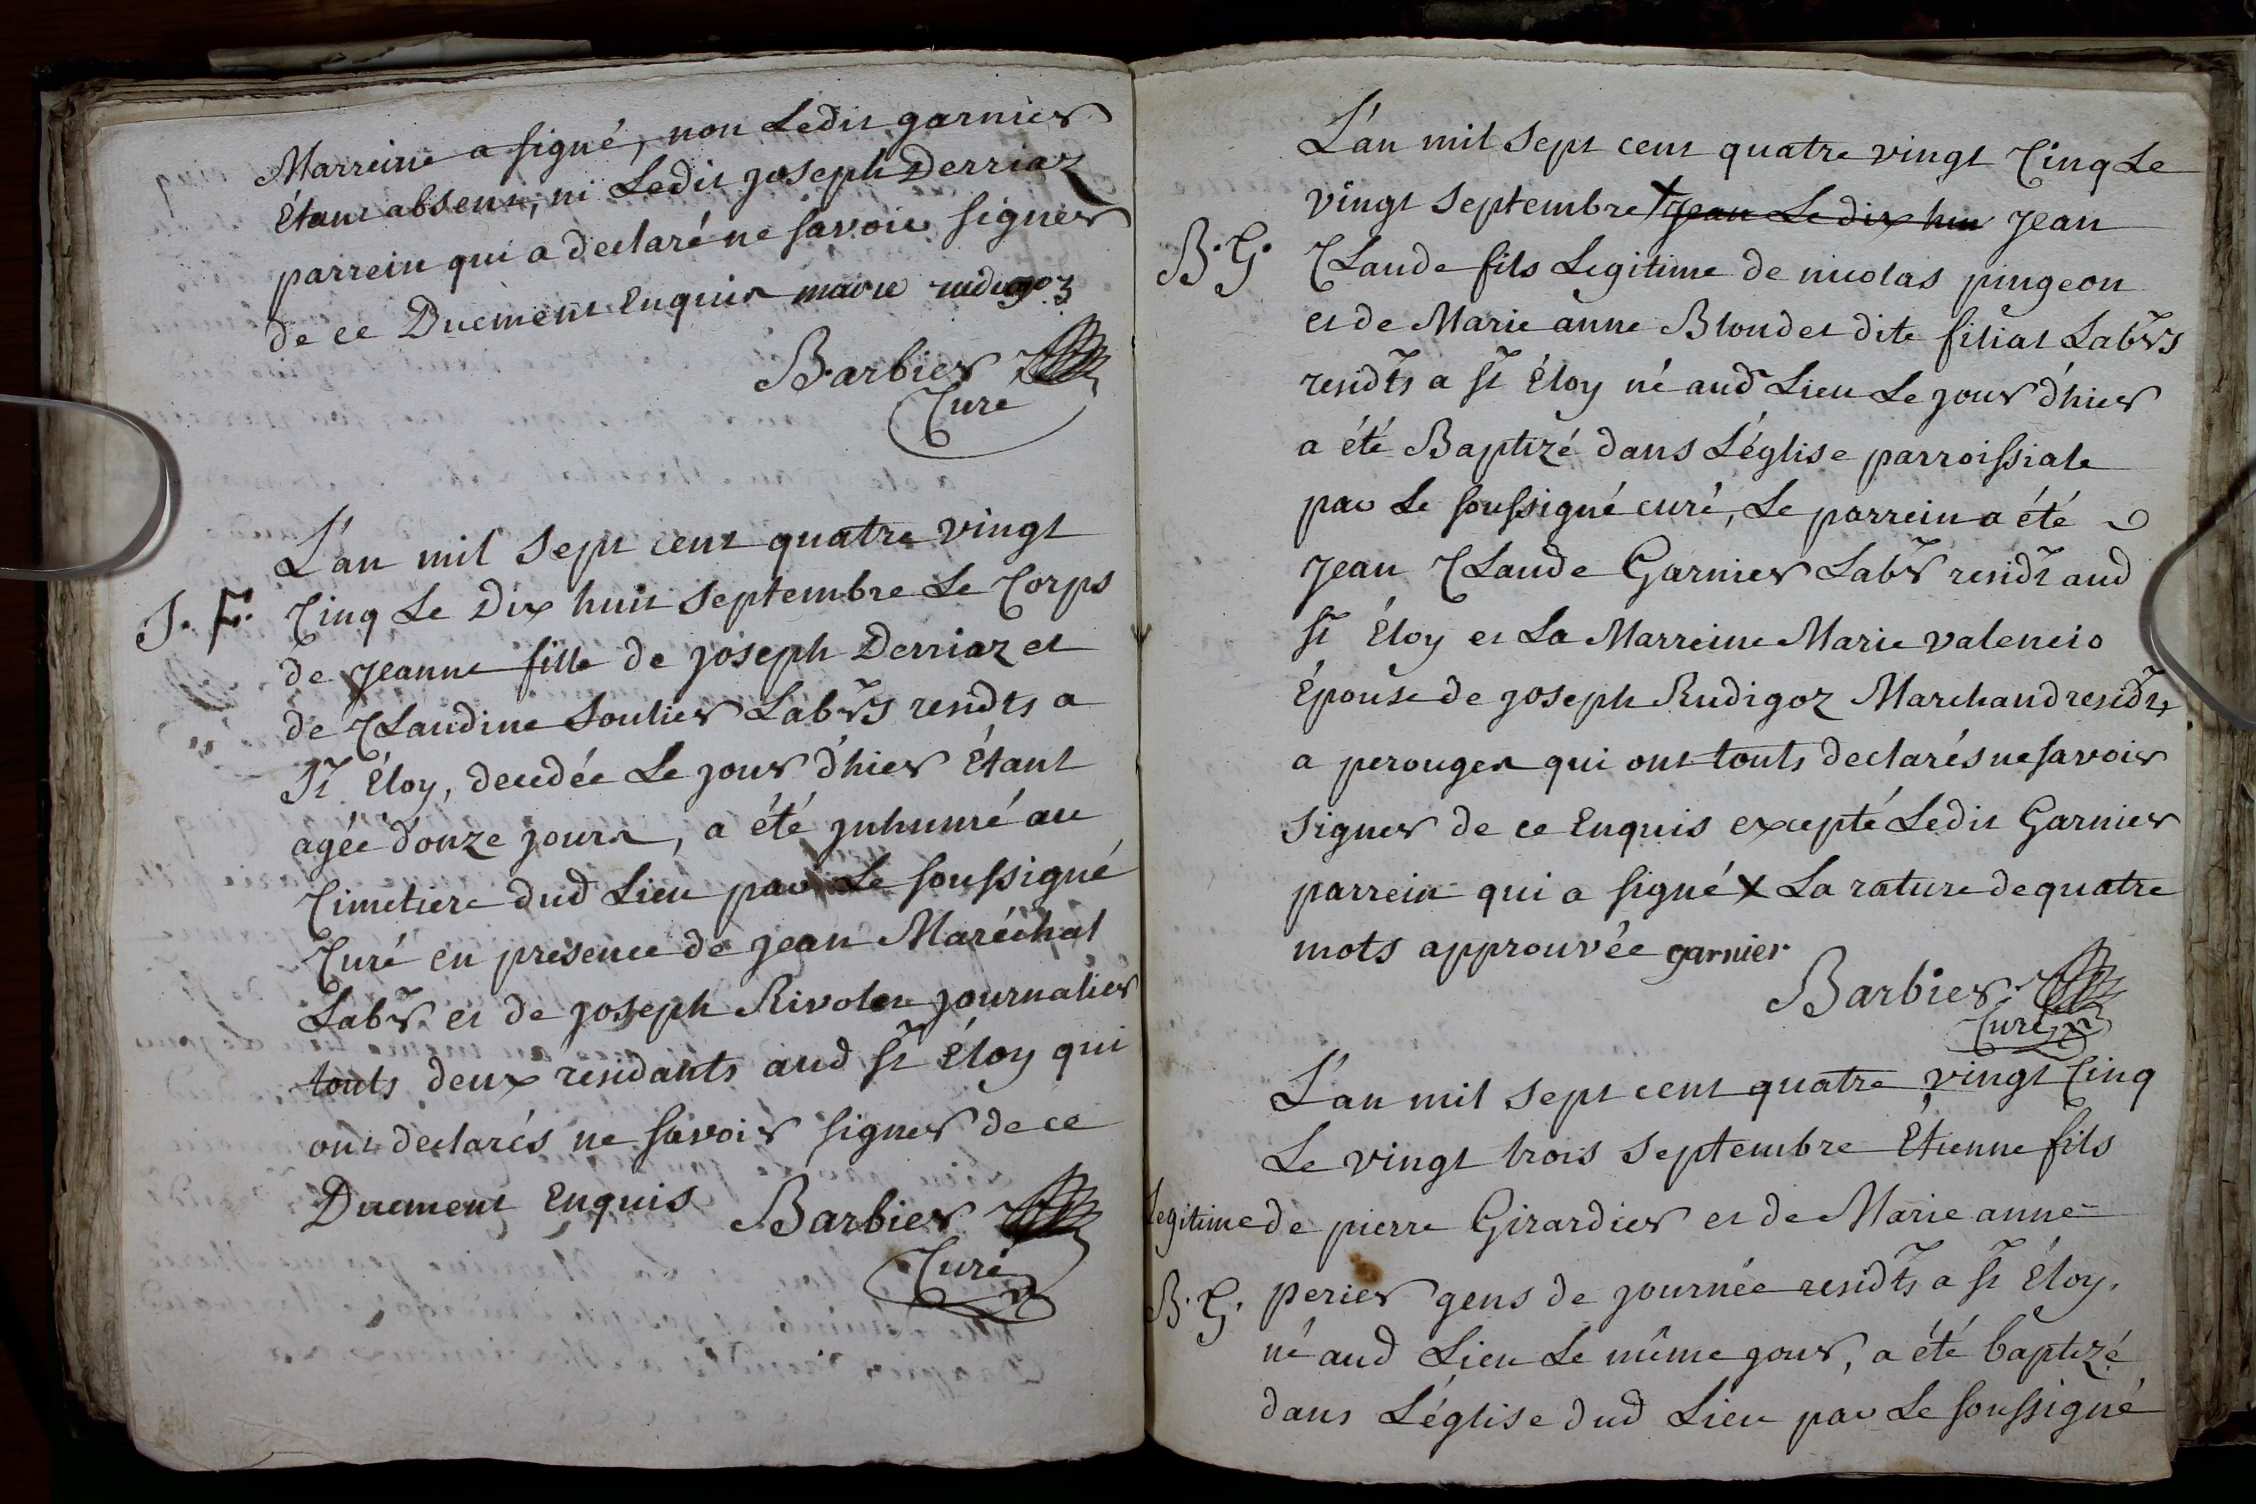 Marreine a signé, non Ledit garnier
Étant absent, ni Ledit joseph Derriaz
parrein qui a declaré ne savoir signer
de ce Duement Enquis marie rudigoz
Barbier
Curé
L'an mil sept cent quatre vingt
J. F. Cinq Le Dix huit septembre Le Corps
de jeanne fille de joseph Derriaz et
de Claudine Soulier Labrs residts a
St Éloy, decedée Le jour d'hier Étant
agée d'onze jours, a été jnhumé au
Cimetiere dud Lieu par Le soussigné
Curé en presence de jean Maréchal
Labr et de joseph Rivolen journalier
touts deux residants aud St Éloy qui
ont declarés ne savoir signer de ce
Duement Enquis Barbier
Curé
L'an mil sept cent quatre vingt Cinq Le
vingt septembre X jean Le dix huit jean
B. G. Claude fils Legitime de nicolas pingeon
et de Marie anne Blondet dite filiat Labrs
residts a St Éloy né aud Lieu Le jour d'hier
a été Baptizé dans L'église parroissiale
par Le soussigné curé, Le parrein a été
jean Claude Garnier Labr residt aud
St Éloy et La Marreine Marie valencio
Épouse de joseph Rudigoz Marchand residt
a perouges qui ont touts declarés ne savoir
signer de ce Enquis excepté Ledit Garnier
parrein qui a signé X La rature de quatre
mots approuvée garnier
Barbier
Curé
L'an mil sept cent quatre vingt Cinq
Le vingt trois septembre Étienne fils
Legitime de pierre Girardier et de Marie anne
B. G. perier gens de journée residts a St Éloy.
né aud Lieu Le même jour, a été baptizé
dans L'église dud Lieu par Le soussigné